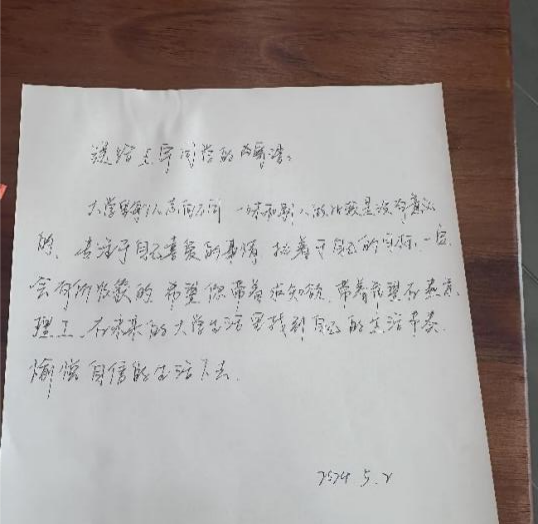 送给王宇同学的寄语:
大学里每个人志向不同 一味和别人做比较是没有意义
的、专注于自己喜爱的事情 执着于自己的目标、一定
会有所收获的 希望你带着求知欲、带着希望在燕京
理工、在未来的大学生活里找到自己的生活节奏
愉悦自信的生活下去.
2024 5.2